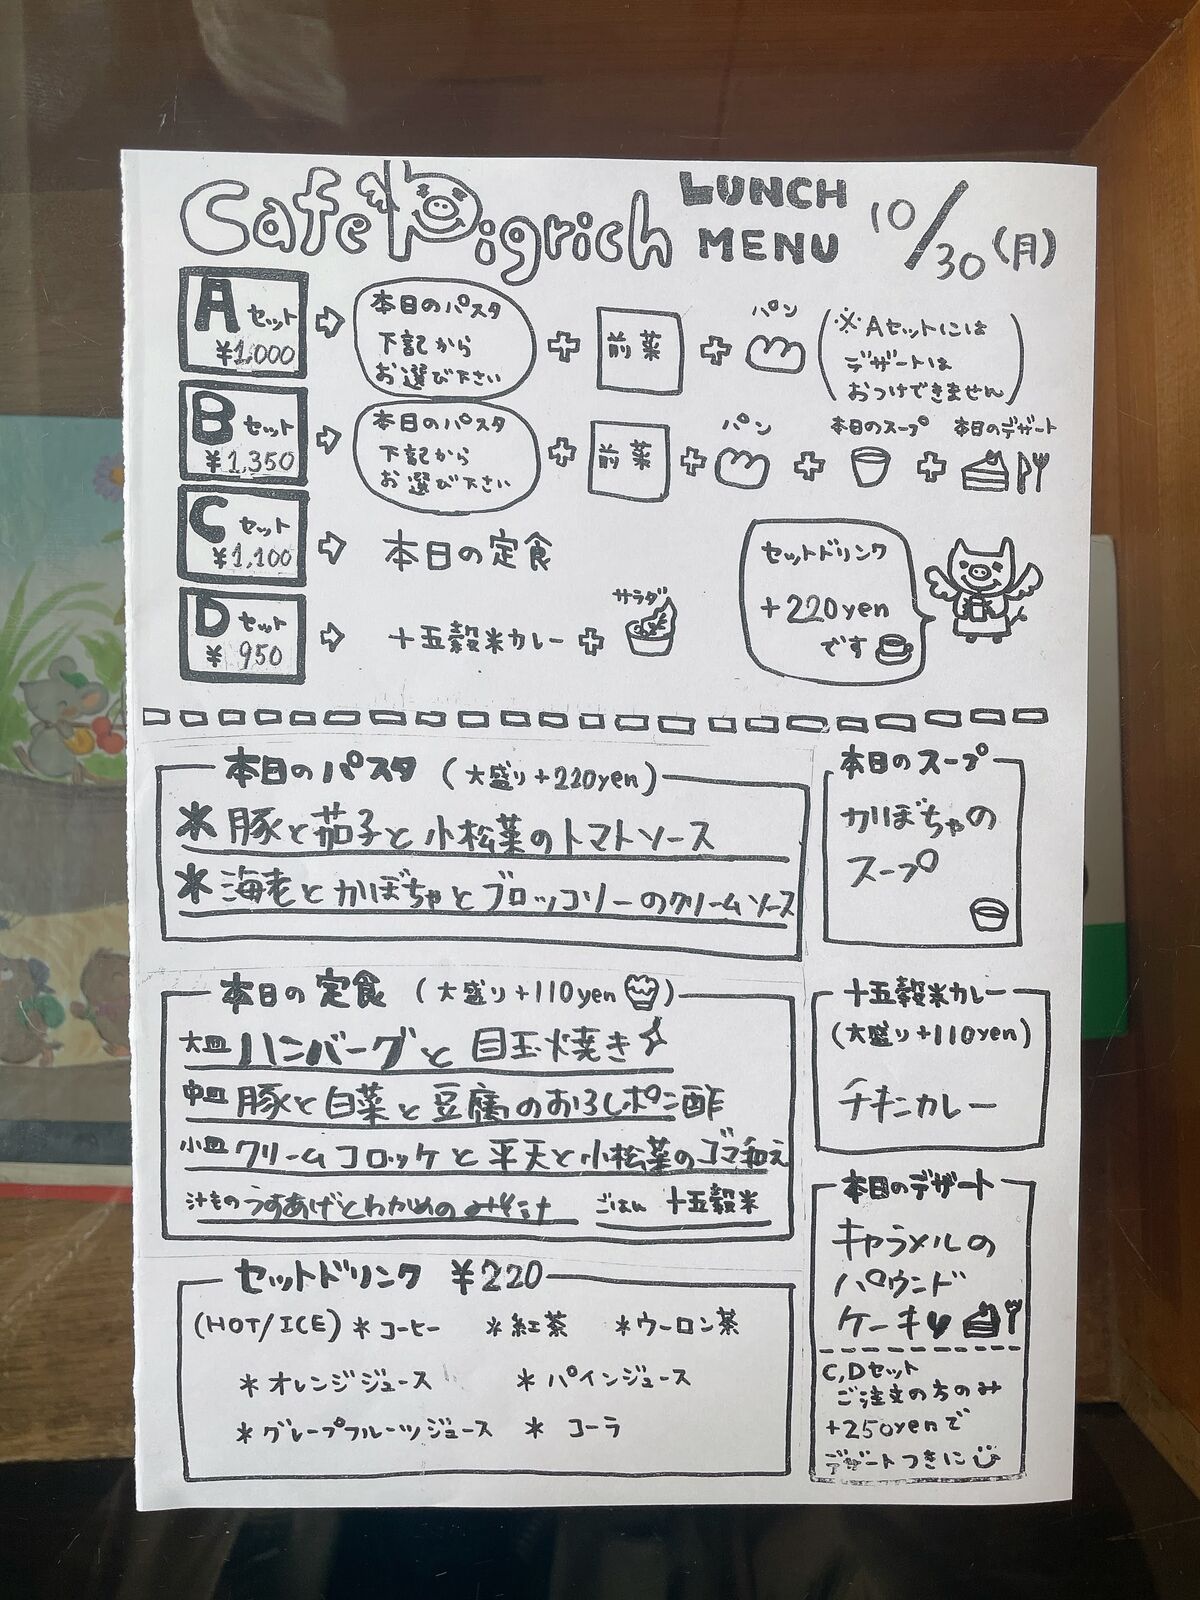 Cafe Pigrich LUNCH MENU 10/30(月)
Aセット ¥1,000
本日のパスタ
下記から
お選び下さい
前菜
パン
(※Aセットには
デザートは
おつけできません)
Bセット ¥1,350
本日のパスタ
下記から
お選び下さい
前菜
パン
本日のスープ
本日のデザート
Cセット ¥1,100
本日の定食
Dセット ¥950
十五穀米カレー
サラダ
セットドリンク
+220yen
です
本日のパスタ (大盛り+220yen)
*豚と茄子と小松菜のトマトソース
*海老とかぼちゃとブロッコリーのクリームソース
本日のスープ
かぼちゃの
スープ
本日の定食 (大盛り+110yen)
大皿 ハンバーグと目玉焼き
中皿 豚と白菜と豆腐のおろしポン酢
小皿 クリームコロッケと平天と小松菜のゴマ和え
汁もの うすあげとわかめのみそ汁 ごはん 十五穀米
十五穀米カレー
(大盛り+110yen)
チキンカレー
本日のデザート
キャラメルの
パウンド
ケーキ
C,Dセット
ご注文の方のみ
+250yenで
デザートつきに
セットドリンク ¥220
(HOT/ICE) *コーヒー *紅茶 *ウーロン茶
*オレンジジュース *パインジュース
*グレープフルーツジュース *コーラ